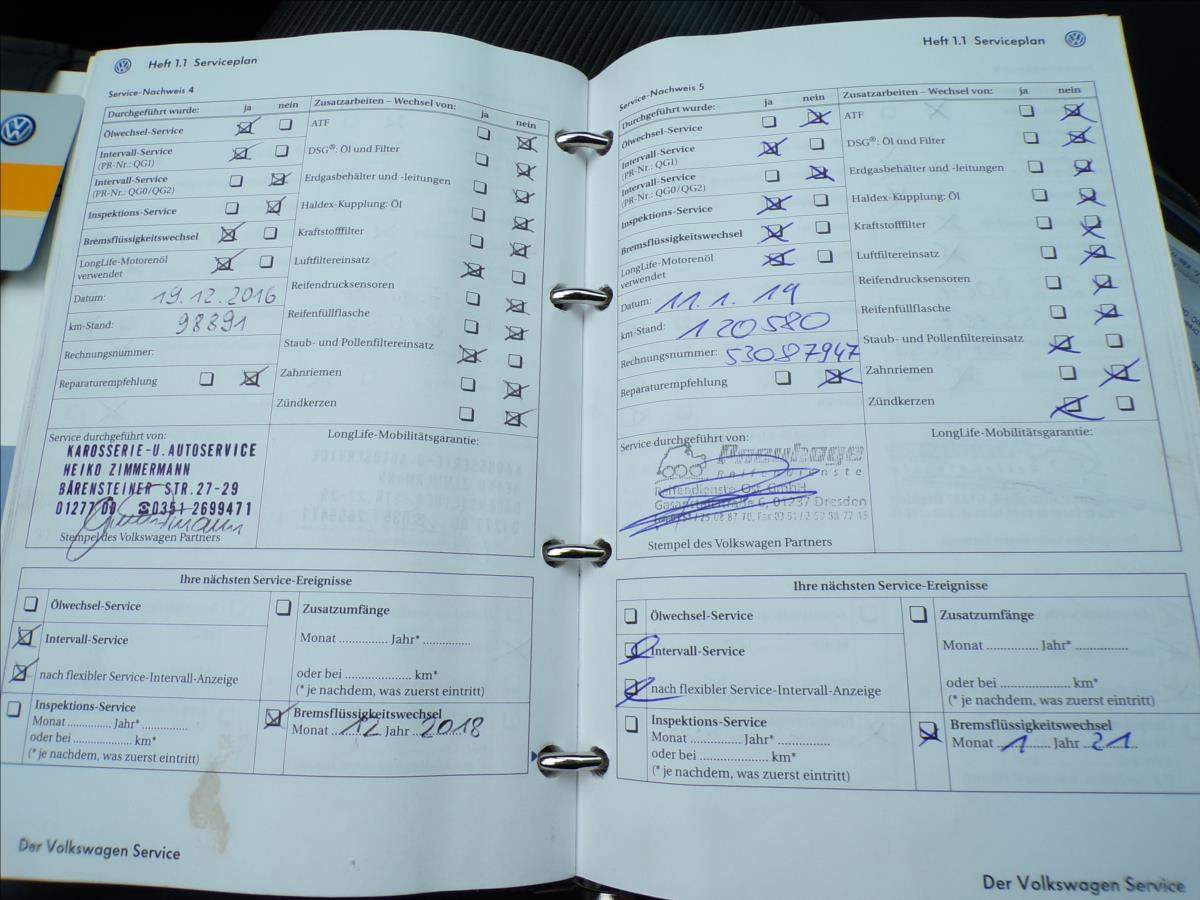 Heft 1.1 Serviceplan
Service-Nachweis 4
Durchgeführt wurde: ja nein
Ölwechsel-Service
Intervall-Service
(PR-Nr.: QG1)
Intervall-Service
(PR-Nr.: QG0/QG2)
Inspektions-Service
Bremsflüssigkeitswechsel
LongLife-Motorenöl
verwendet
Datum: 19.12.2016
km-Stand: 98891
Rechnungsnummer:
Reparaturempfehlung
Zusatzarbeiten – Wechsel von: ja nein
ATF
DSG®: Öl und Filter
Erdgasbehälter und -leitungen
Haldex-Kupplung: Öl
Kraftstofffilter
Luftfiltereinsatz
Reifendrucksensoren
Reifenfüllflasche
Staub- und Pollenfiltereinsatz
Zahnriemen
Zündkerzen
Service durchgeführt von:
KAROSSERIE-U. AUTOSERVICE
HEIKO ZIMMERMANN
BÄRENSTEINER STR. 27-29
01277 DD ☎0351 2699471
Stempel des Volkswagen Partners
LongLife-Mobilitätsgarantie:
Ihre nächsten Service-Ereignisse
Ölwechsel-Service
Intervall-Service
nach flexibler Service-Intervall-Anzeige
Inspektions-Service
Monat ............ Jahr* ............
oder bei ............ km*
(* je nachdem, was zuerst eintritt)
Zusatzumfänge
Monat ............ Jahr* ............
oder bei ............ km*
(* je nachdem, was zuerst eintritt)
Bremsflüssigkeitswechsel
Monat 12 Jahr 2018
Der Volkswagen Service
Heft 1.1 Serviceplan
Service-Nachweis 5
Durchgeführt wurde: ja nein
Ölwechsel-Service
Intervall-Service
(PR-Nr.: QG1)
Intervall-Service
(PR-Nr.: QG0/QG2)
Inspektions-Service
Bremsflüssigkeitswechsel
LongLife-Motorenöl
verwendet
Datum: 11.1.19
km-Stand: 120580
Rechnungsnummer: 53087947
Reparaturempfehlung
Zusatzarbeiten – Wechsel von: ja nein
ATF
DSG®: Öl und Filter
Erdgasbehälter und -leitungen
Haldex-Kupplung: Öl
Kraftstofffilter
Luftfiltereinsatz
Reifendrucksensoren
Reifenfüllflasche
Staub- und Pollenfiltereinsatz
Zahnriemen
Zündkerzen
Service durchgeführt von:
Pneuhage
Reifendienste
Reifendienste Ost GmbH
01237 Dresden
Stempel des Volkswagen Partners
LongLife-Mobilitätsgarantie:
Ihre nächsten Service-Ereignisse
Ölwechsel-Service
Intervall-Service
nach flexibler Service-Intervall-Anzeige
Inspektions-Service
Monat ............ Jahr* ............
oder bei ............ km*
(* je nachdem, was zuerst eintritt)
Zusatzumfänge
Monat ............ Jahr* ............
oder bei ............ km*
(* je nachdem, was zuerst eintritt)
Bremsflüssigkeitswechsel
Monat 1 Jahr 21
Der Volkswagen Service